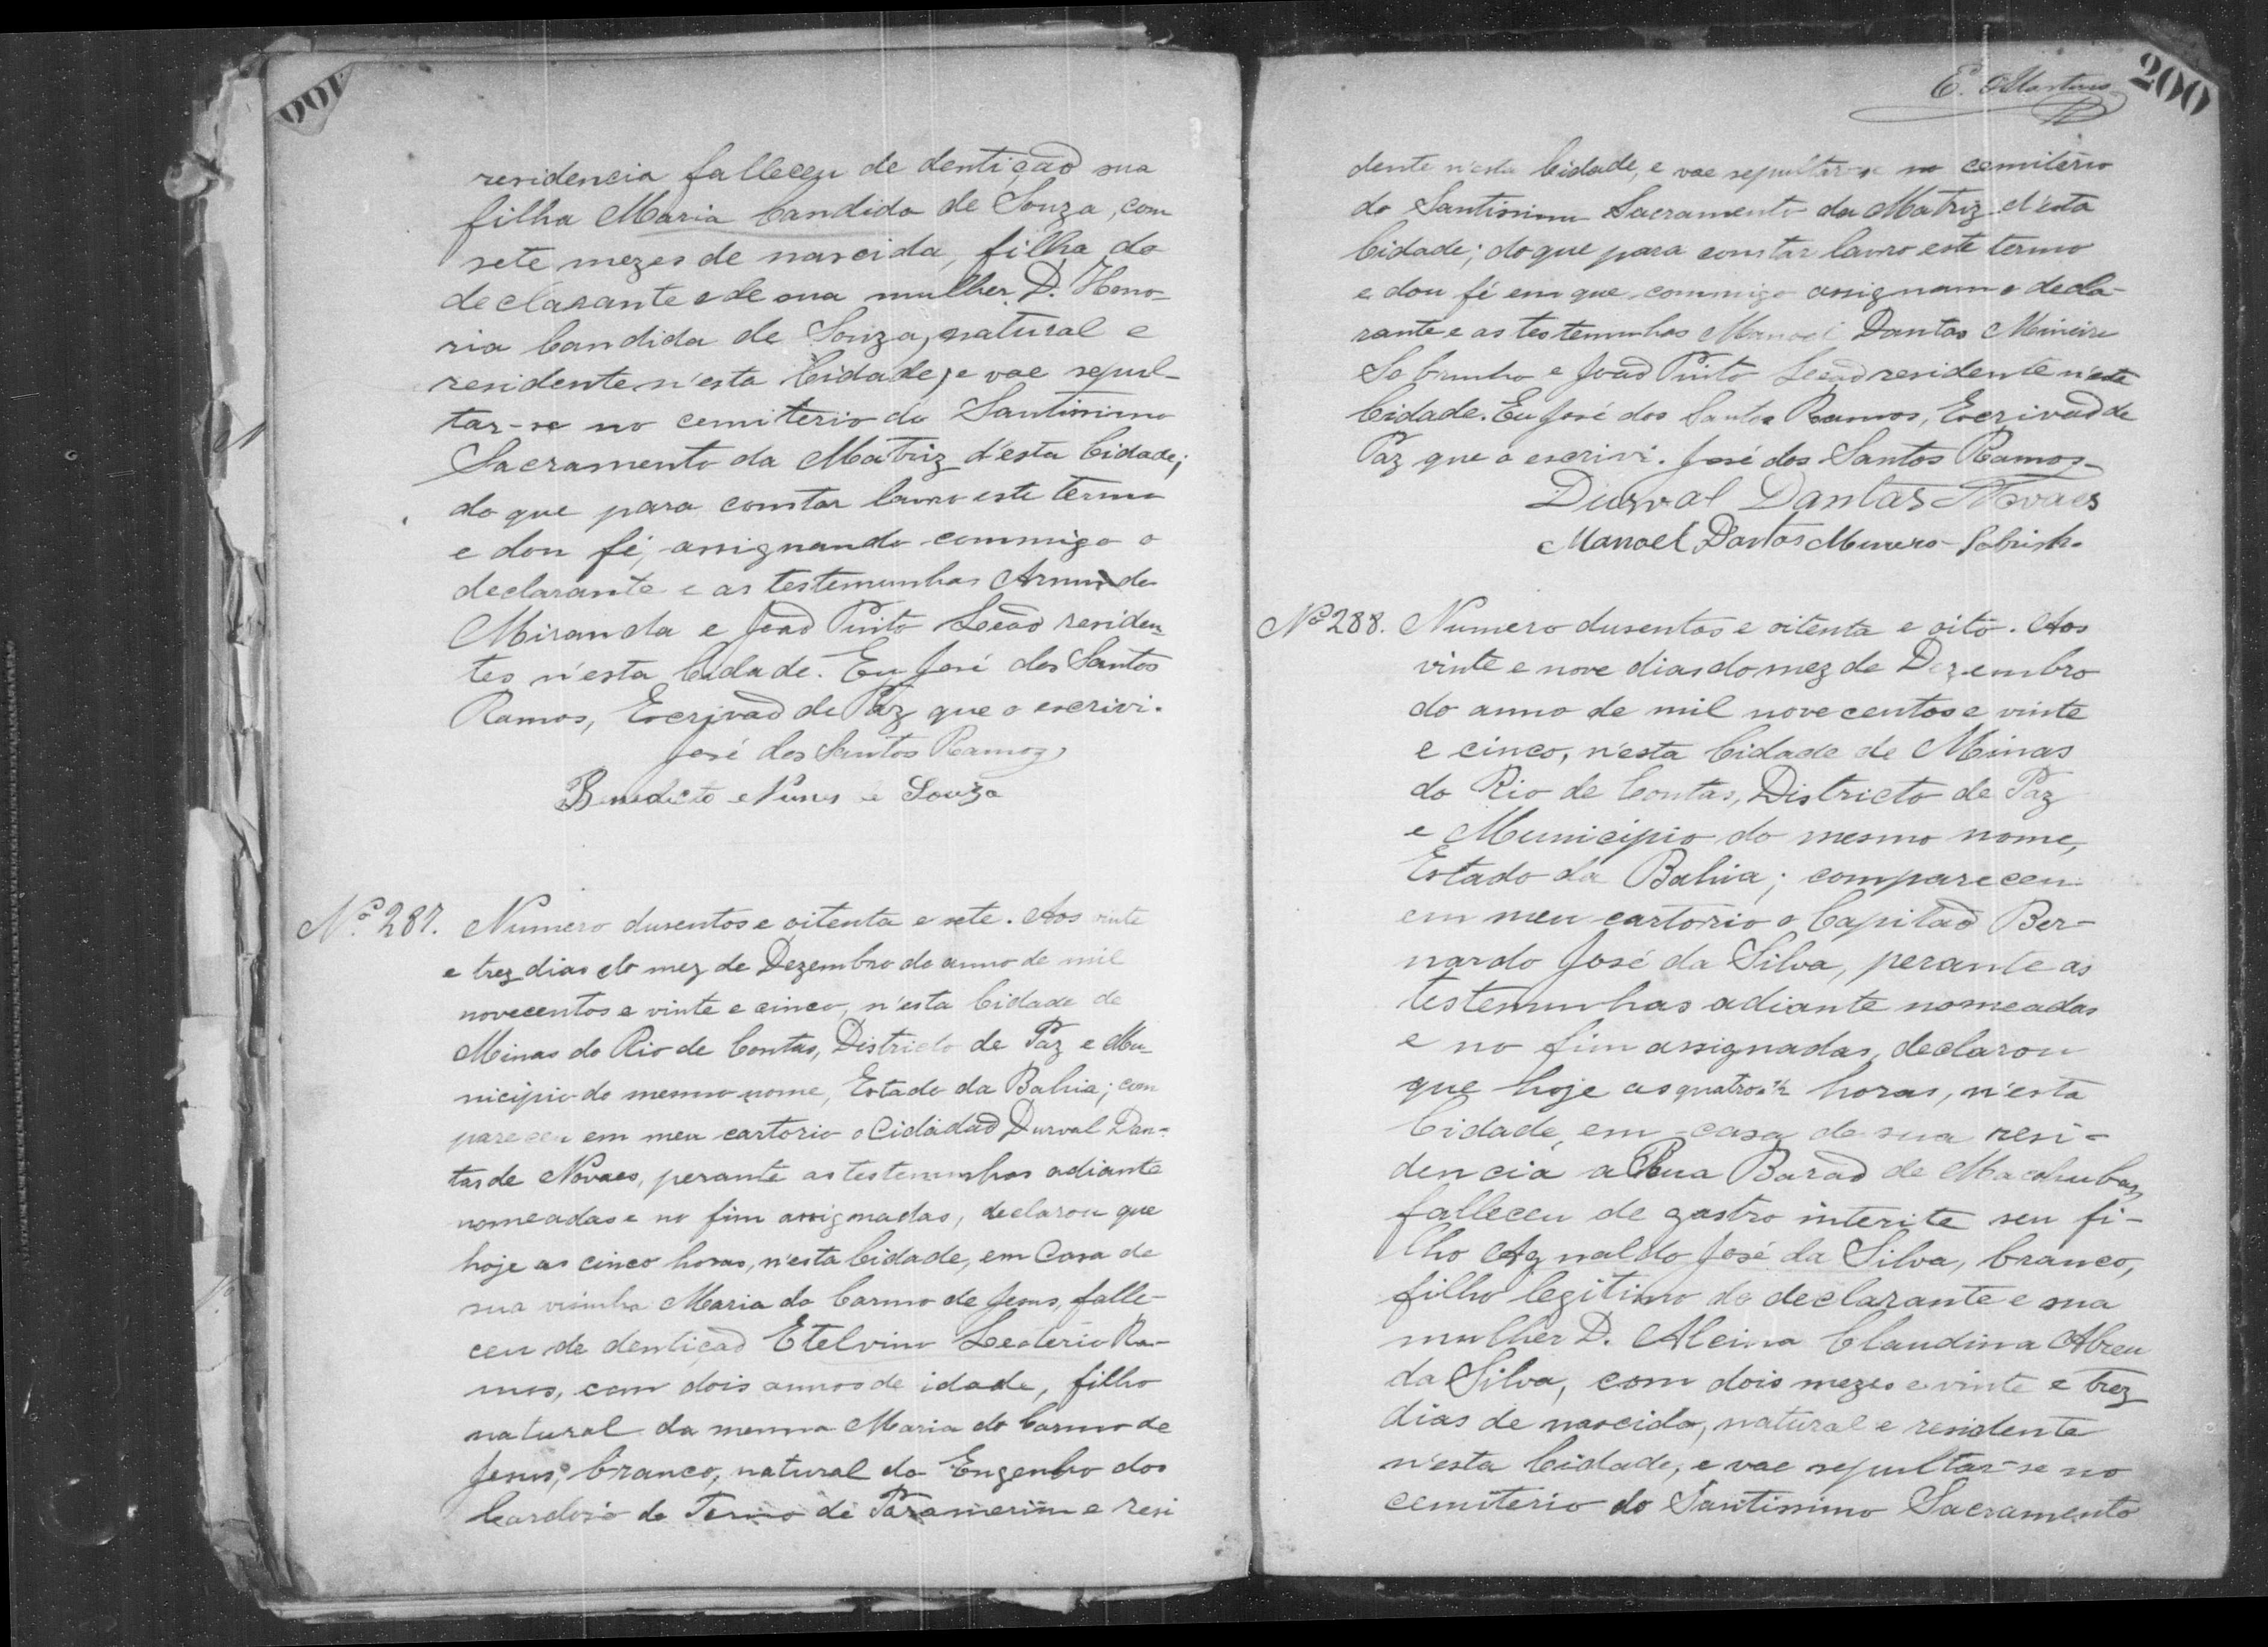 residencia falleceu de dentição sua
filha Maria Candida de Souza, com
sete mezes de nascida, filha do
declarante e de sua mulher D. Hono-
ria Candida de Souza, natural e
residente n'esta Cidade, e vae sepul-
tar-se no cemiterio do Santissimo
Sacramento da Matriz d'esta Cidade;
do que para constar lavro este termo
e dou fé, assignando commigo o
declarante e as testemunhas
Miranda e João Pinto Leão residen-
tes n'esta Cidade. Eu José dos Santos
Ramos, Escrivaõ de Paz que o escrivi.
José dos Santos Ramos
Benedicto Nunes de Souza
Nº 287. Numero dusentos e oitenta e sete. Aos vinte
e trez dias do mez de Dezembro do anno de mil
novecentos e vinte e cinco, n'esta Cidade de
Minas do Rio de Contas, Districto de Paz e Mu-
nicipio do mesmo nome, Estado da Bahia; com
pareceu em meu cartorio o Cidadaõ Durval Dan-
tas de Novaes, perante as testemunhas adiante
nomeadas e no fim assignadas, declarou que
hoje as cinco horas, n'esta Cidade, em Casa de
sua visinha Maria do Carmo de Jesus, falle-
ceu de dentiçaõ Etelvino Leoterio Ra-
mos, com dois annos de idade, filho
natural da mesma Maria do Carmo de
Jesus, branco, natural do Engenho dos
Cardoso do Termo de Paramerim e resi
200
E. Martins
dente n'esta Cidade, e vae sepultar-se no cemiterio
do Santissimo Sacramento da Matriz d'esta
Cidade; do que para constar lavro este termo
e dou fé em que commigo assignam o decla-
rante e as testemunhas Manoel Dantas Mineiro
Sobrinho e João Pinto Leaõ residente n'esta
Cidade. Eu José dos Santos Ramos, Escrivaõ de
Paz que o escrivi. José dos Santos Ramos
Durval Dantas Novaes
Manoel Dantas Mineiro Sobrinho
Nº 288. Numero dusentos e oitenta e oito. Aos
vinte e nove dias do mez de Dezembro
do anno de mil novecentos e vinte
e cinco, n'esta Cidade de Minas
do Rio de Contas, Districto de Paz
e Municipio do mesmo nome,
Estado da Bahia; compareceu
em meu cartorio o Capitaõ Ber-
nardo José da Silva, perante as
testemunhas adiante nomeadas
e no fim assignadas, declarou
que hoje as quatro e ½ horas, n'esta
Cidade, em casa de sua resi-
dencia a Rua Baraõ de Macahubas,
falleceu de gastro interite seu fi-
lho Agnaldo José da Silva, branco,
filho legitimo do declarante e sua
mulher D. Alcina Claudina Abreu
da Silva, com dois mezes e vinte e trez
dias de nascido, natural e residente
n'esta Cidade, e vae sepultar-se no
cemiterio do Santissimo Sacramento